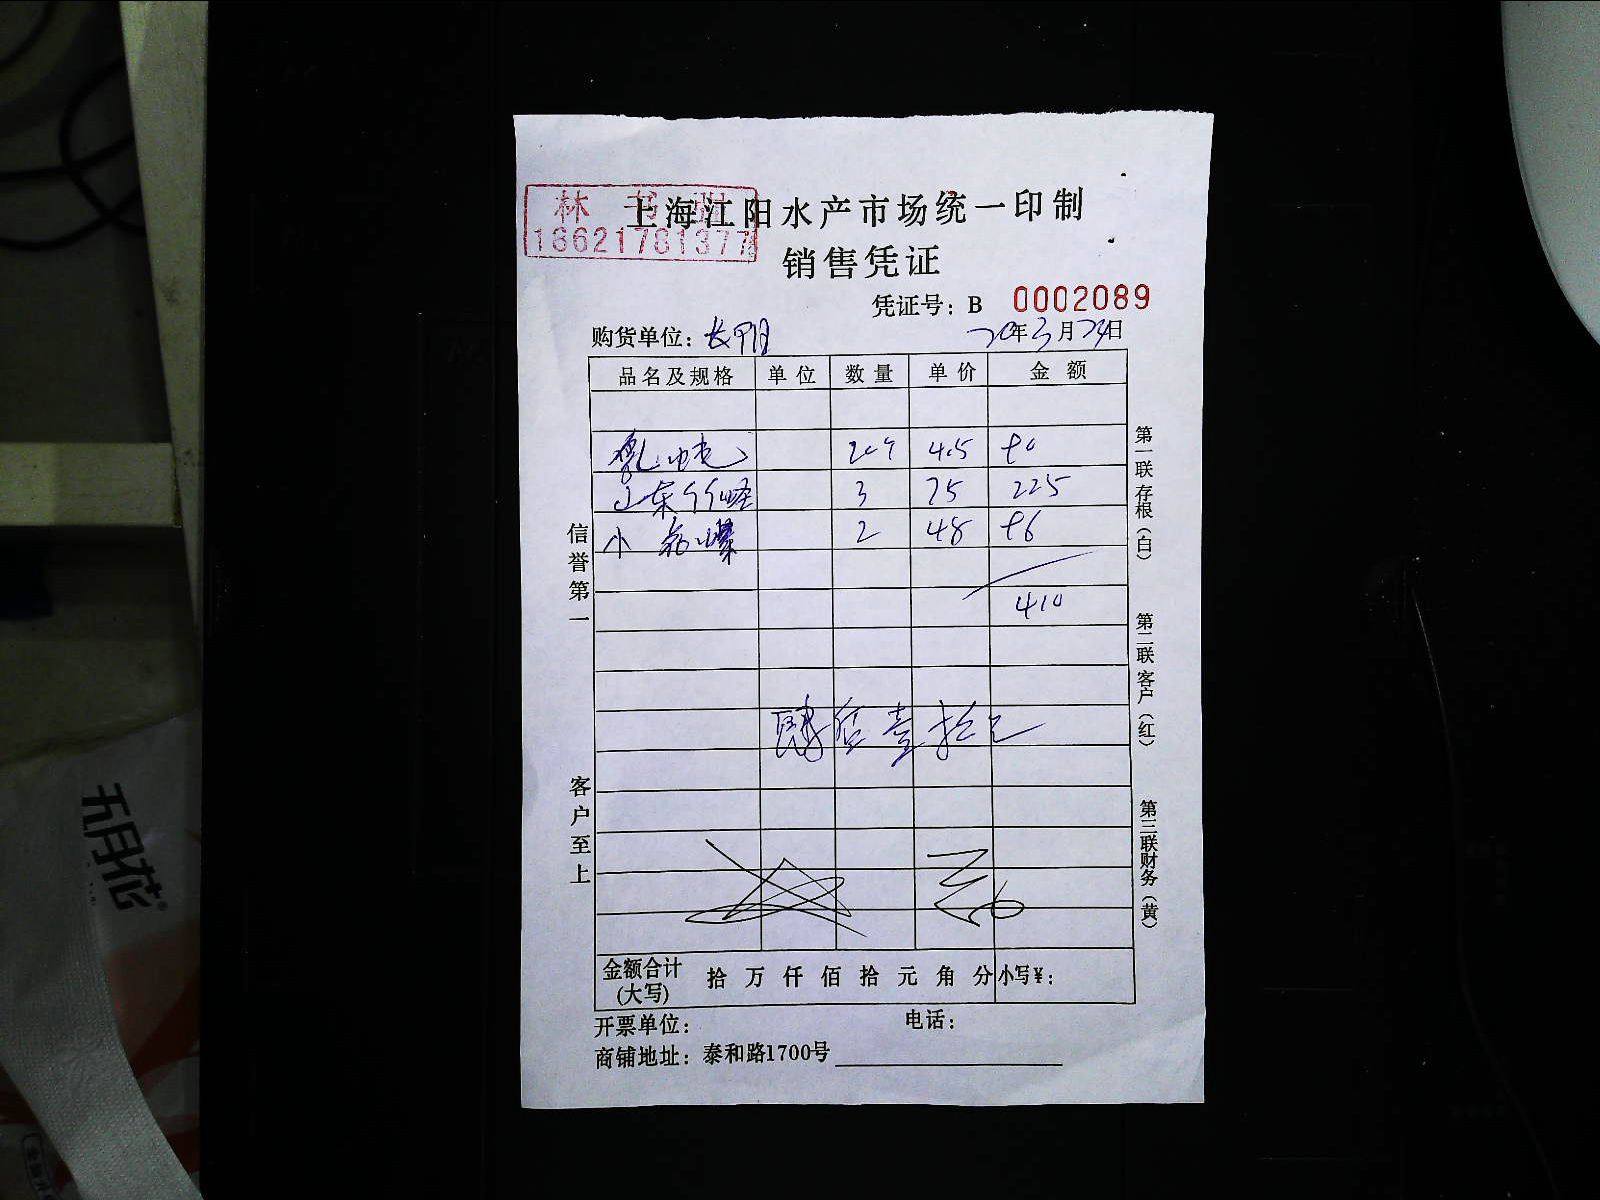 林书
18621781377
上海江阳水产市场统一印制
销售凭证
凭证号：B 0002089
购货单位：长阳
20年3月23日
品名及规格 单位 数量 单价 金额
乳 20个 4.5 90
山东竹蛏 3 75 225
小 2 48 96
410
肆佰壹拾元
金额合计(大写) 拾 万 仟 佰 拾 元 角 分 小写¥：
开票单位： 电话：
商铺地址：泰和路1700号
信誉第一
客户至上
第一联存根（白）
第二联客户（红）
第三联财务（黄）
五月花